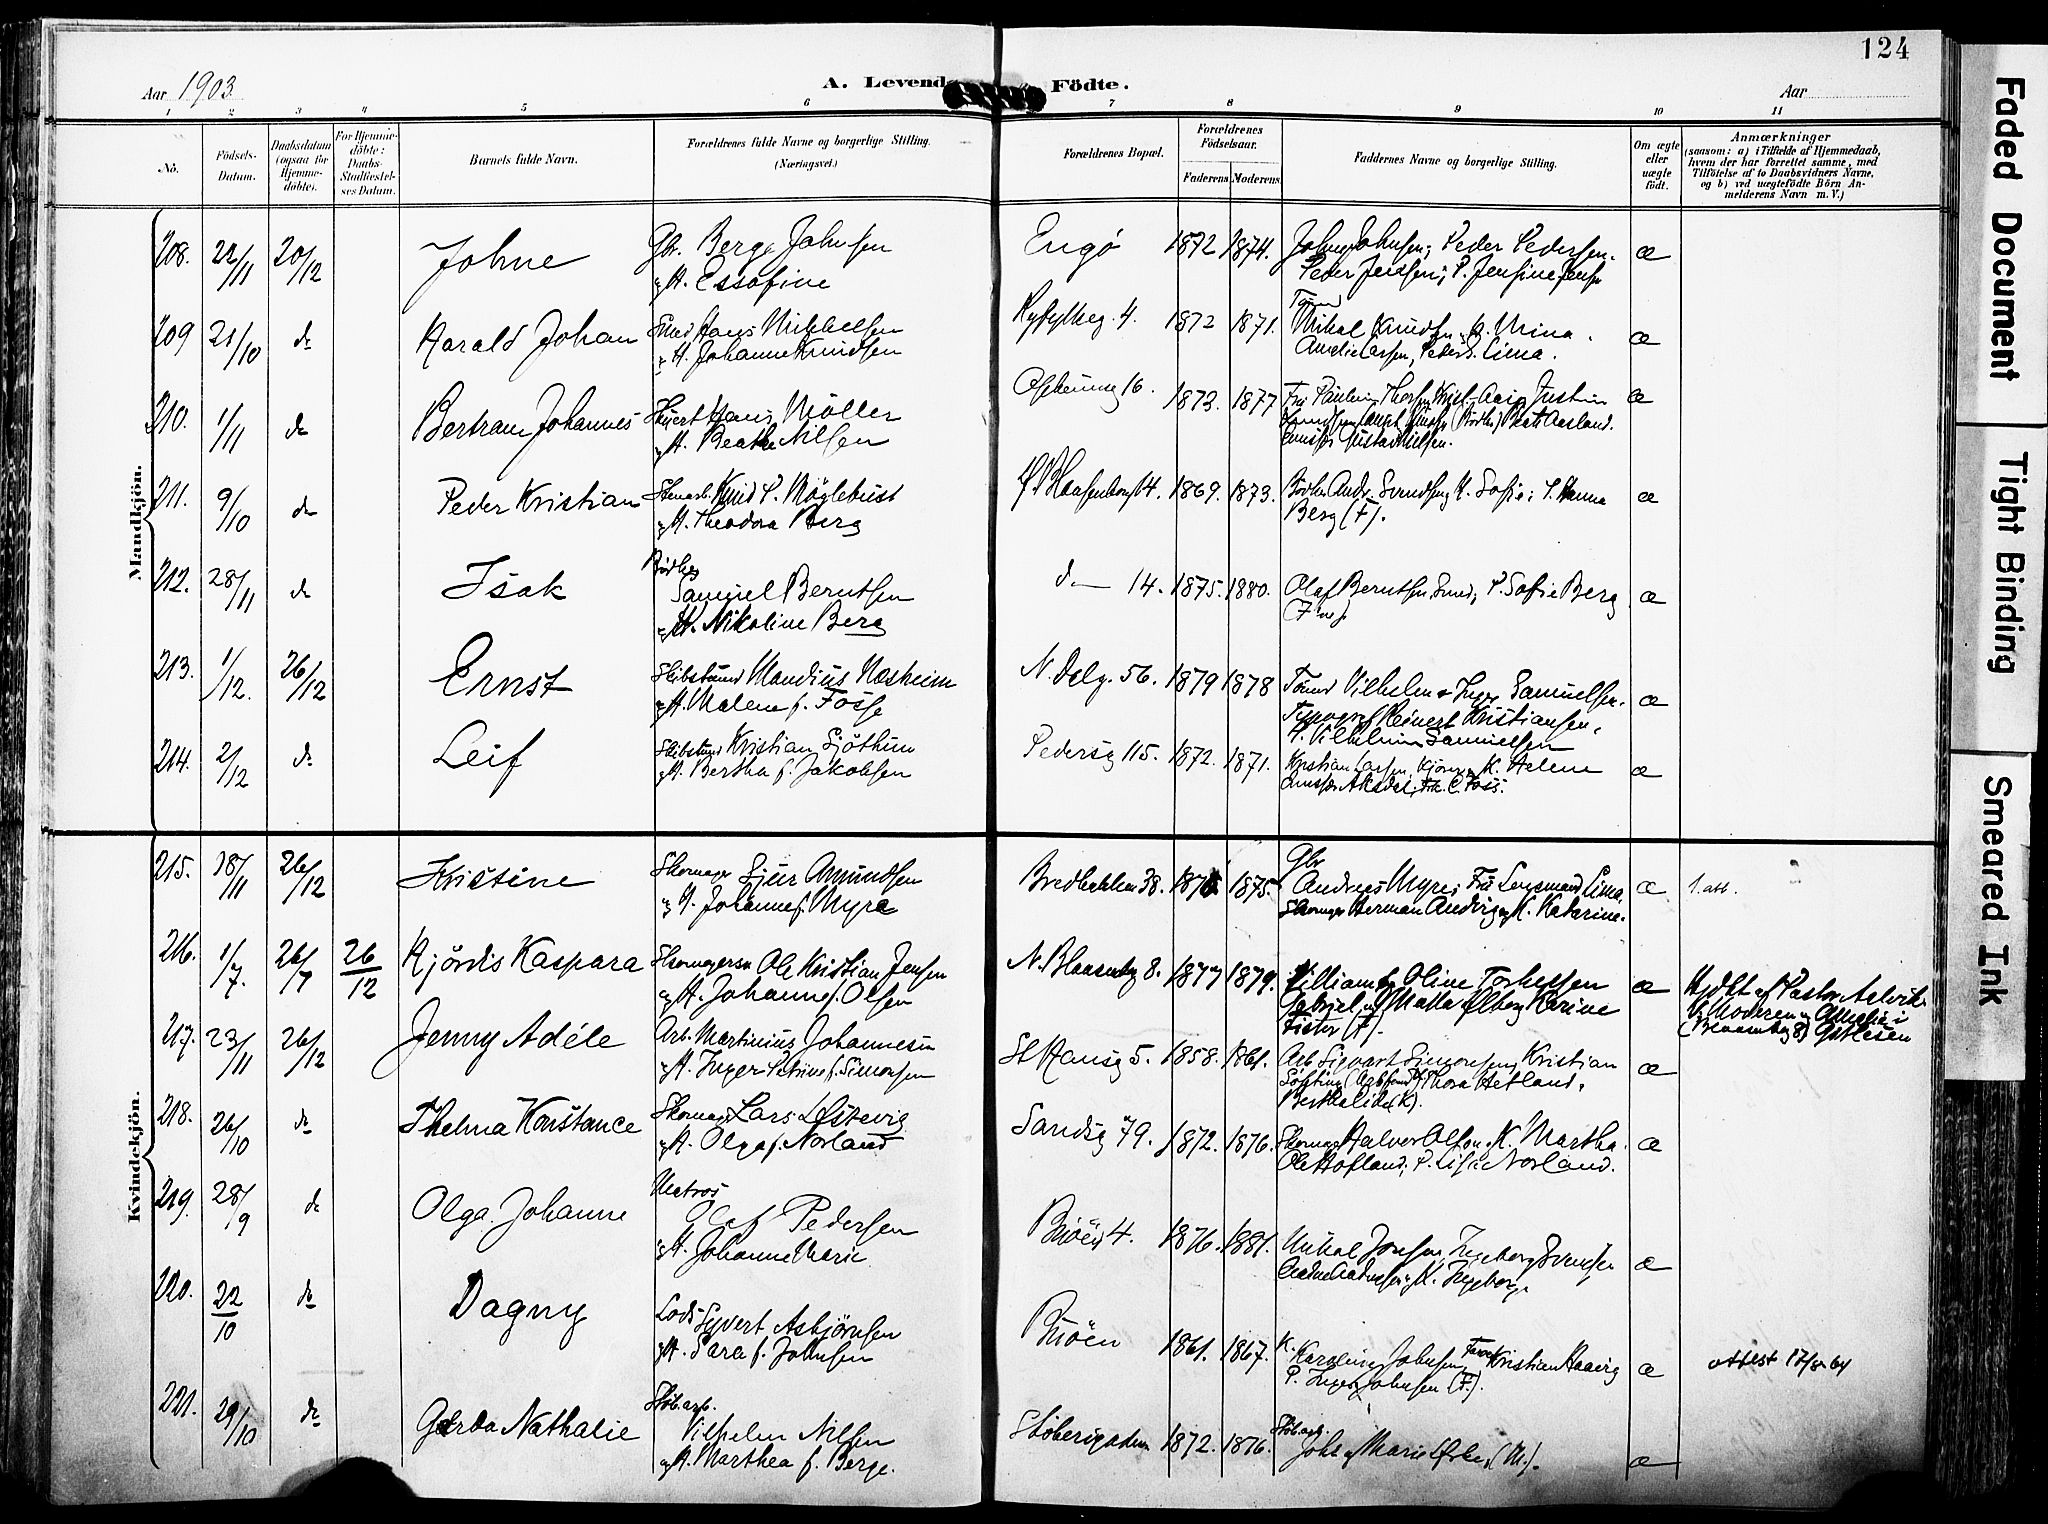 124
Aar 1903
A. Levende Födte.
Aar
1 2 3 4 5 6 7 8 9 10 11
No.
Födsels-Datum.
Daabsdatum (ogsaa for Hjemmedöbte).
For Hjemmedöbte: Daabs-Stadfæstelses Datum.
Barnets fulde Navn.
Forældrenes fulde Navne og borgerlige Stilling. (Næringsvei.)
Forældrenes Bopæl.
Forældrenes Födselsaar.
Faderens. Moderens.
Faddernes Navne og borgerlige Stilling.
Om ægte eller uægte födt.
Anmærkninger
(saasom: a) i Tilfælde af Hjemmedaab,
hvem der har forrettet samme, med
Tilföielse af to Daabsvidners Navne,
og b) ved uægtefödte Börn An-
melderens Navn m. V.)
Mandkjön.
208. 22/11 20/12 Johne Gbr. Berge Johnsen
og H. Essofine
Engö 1872 1874. Johne Johnsen; Peder Pedersen.
Peder Jensen; P. Jensine Jens æ
209 21/10 do Harald Johan Smed Hans Mikkelsen
og H. Johanne Knudsen
Ryfylkeg. 4. 1872 1871. Mikal Knudsen, K. Mina.
Amelie Larsen, Peder S. Lima. æ
210. 1/11 do Bertram Johannes Hans Möller
og H. Beathe Nilsen
16. 1873. 1877 æ
Gustav Nielsen.
211. 9/10 do Peder Kristian Stenarb. Knud P. Möglebust
og H. Theodora Berg
14. 1869. 1873. Bödker Andr. Svendsen, K. Sofie; P. Hanna
Berg (F). æ
212. 28/11 do Isak Bödker
Samuel Berntsen
og H. Nikoline Berg
do 14. 1875. 1880. Olaf Berntsen Smed, P. Sofie Berg æ
213. 1/12. 26/12 Ernst Skibstömd Mandius Næsheim
og H. Malene f. Fosse
N. Dalg. 56. 1879 1878 Tömmd Vilhelm & Inga Samuelsen.
Typograf Reinert Kristiansen,
H. Vilhelmine Samuelsen æ
214. 2/12 do Leif Skibstömd Kristian Sjöthun
og H. Bertha f. Jakobsen
Pedersg 115. 1872. 1871. Kristian Larsen, K. Helene
Frk. C. Foss. æ
Kvindekjön.
215. 18/11 26/12 Kristine Skomager Sjur Amundsen
og H. Johanne f. Myre
Bredbakken 38. 1875. Gbr
Andreas Myre; Fru Lima.
Skomager Herman K. Katarine. æ 1. att.
216. 1/7. 26/7 26/12 Hjördis Kaspara Skomagersv Ole Kristian Jensen
og H. Johanne f. Olsen
N. Blaasenbg 8. 1877 1879. William og Oline Torkelsen
Gabriel og Malla Ölberg Karine
æ Hjdbt af Pastor Aelvik
(Blaasenbg 8)
217. 23/11 26/12 Jenny Adéle Arb. Martinius Johannesen
og H. Inger Petrine f. Simonsen
St Hansg 5. 1858. 1861. Arb Sigvart Simonsen, Kristian
Thora Hetland,
æ
218. 26/10 do Thelma Konstance Skomager Lars Østevig
og H. Olga f. Norland
Sandsg 79. 1872. 1876. Skomager Halvor Olsen, K. Martha.
Ole Hofland; P. Lise Norland. æ
219. 28/9 do Olga Johanne Matros
Olaf Pedersen
og H. Johanne Marie
Buöen 4. 1876. 1881. Mikal Jonsen, Ingeborg Svendsen
K. Ingeborg æ
220. 22/10 do Dagny Lods Syvert Asbjörnsen
og H. Sara f. Johnsen
Buöen 1861. 1867. K. Karoline Johnsen, Kristian Haavig
P. Inger Johnsen (F.). æ attest 17/8-64
221. 29/10 do Gerda Nathalie Stöb. arb.
Vilhelm Nilsen
og H. Marthea f. Berge.
Stöberigaden 1872. 1876. Stöb arb.
Johs og Marie (M). æ
Faded Document
Tight Binding
Smeared Ink